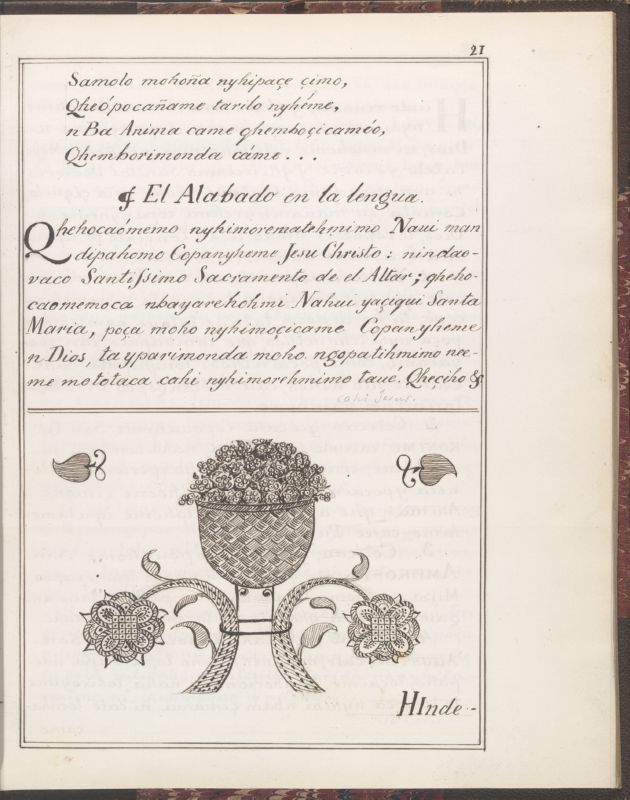 21
Samolo mohoña nyhipaçe çimo,
Qheópocañame tarilo nyhéme,
n Ba Anima came qhemboçicaméo,
Qhemborimonda cáme...
₡ El Alabado en la lengua.
Qhehocaómemo nyhimorematehmimo Naui man
dipahomo Copanyheme Jesu Christo: nindao-
vaco Santissimo Sacramento de el Altar; qheho-
caomemoca nbayarehohmi Nahui yaçiqui Santa
Maria, poça moho nyhimoçicame Copanyheme
n Dios, ta yparimonda moho ngopatihmimo nee-
me mototaca cahi nyhimorehmimo taué. Qheçiho &
cahi Jesus.
HInde -